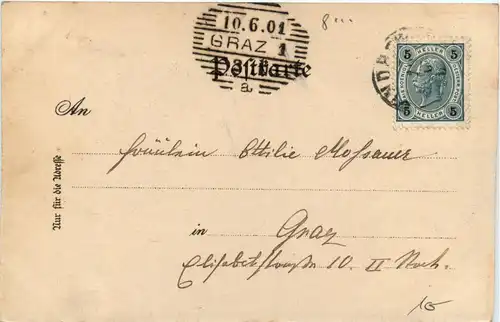 10.6.01
GRAZ 1
Postkarte
a.
5 HELLER 5
5 HELLER 5
An
Fräulein Ottilie Mossauer
Nur für die Adresse
in Graz
Elisabethstraße 10. II Stock.